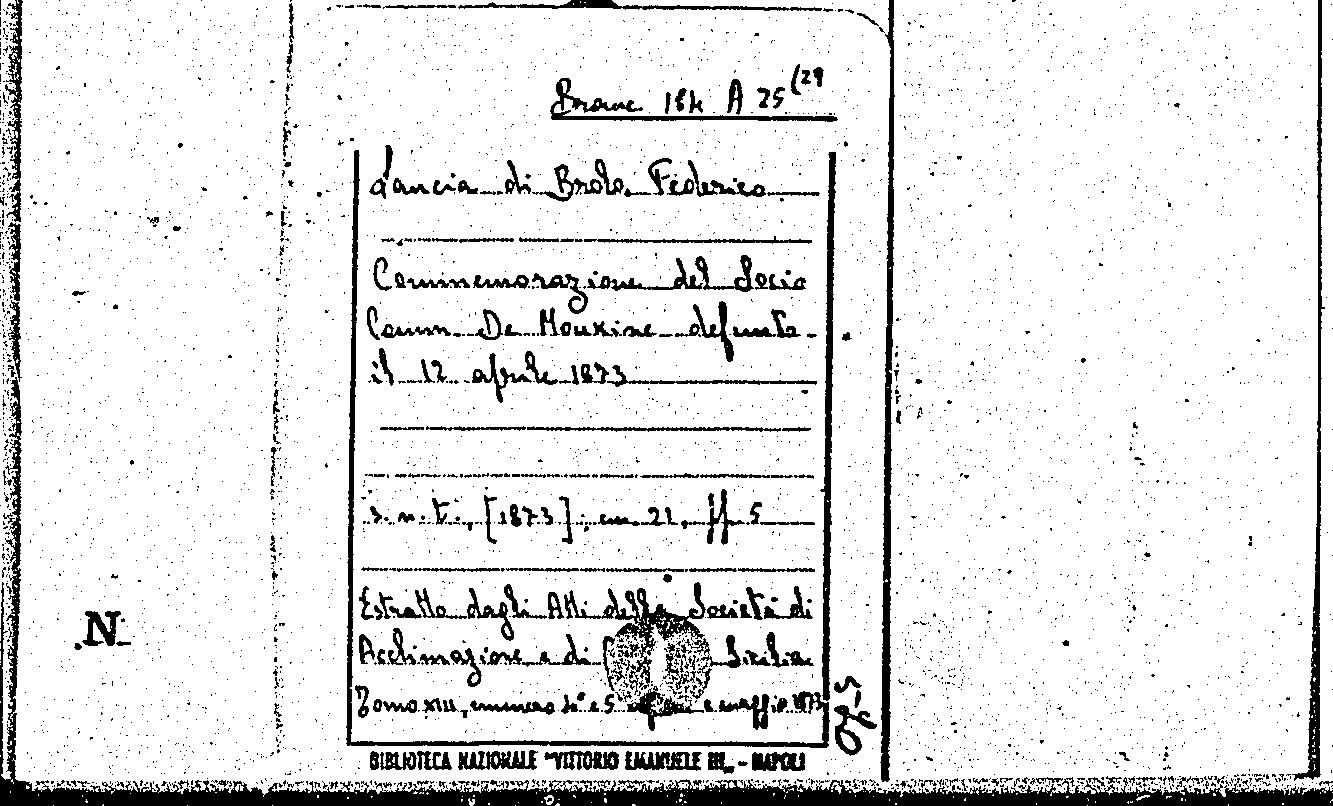 Branc. 184 A 25 (29
Lancia di Brolo Federico
Commemorazione del Socio
Comm. De Mouxine defunto
il 12 aprile 1873
s.n.t., [1873], cm. 21, ff. 5
Estratto dagli Atti della Società di
Acclimazione e di Sicilia
Tomo XIII, numero 4° e 5° e maggio 1873
N
BIBLIOTECA NAZIONALE "VITTORIO EMANUELE III" - NAPOLI